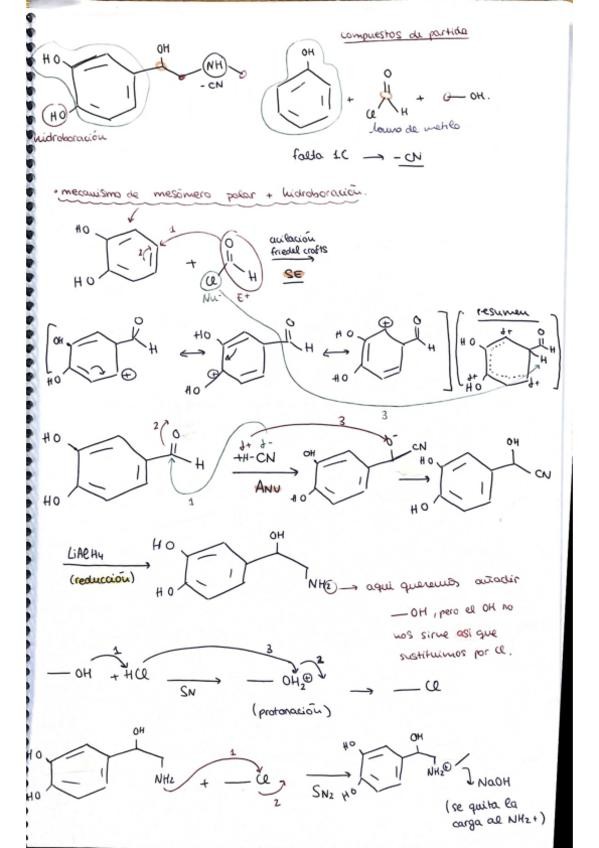 compuestos de partida
OH
HO
NH
- CN
HO
hidroboración
OH
+
O
Cl
H
+
OH.
falta 1C → - CN
• mecanismo de mesómero polar + hidroboración.
HO
HO
1
2
+
O
Cl
H
Nu-
E+
acilación
friedel crafts
SE
OH
HO
O
H
+
HO
HO
O
H
+
HO
HO
O
H
resumen
HO
HO
δ+
O
H
H
δ+
3
HO
HO
2
O
H
1
δ+ δ-
H-CN
ANU
3
OH
HO
O-
CN
HO
HO
OH
CN
LiAlH4
(reducción)
HO
HO
OH
NH2
→ aquí queremos añadir
— OH, pero el OH no
nos sirve así que
sustituimos por Cl.
— OH + HCl
1
SN
3
— OH2+
2
(protonación)
— Cl
HO
HO
OH
NH2
+
1
— Cl
2
SN2
HO
HO
OH
NH2+
NaOH
(se quita la
carga al NH2+)